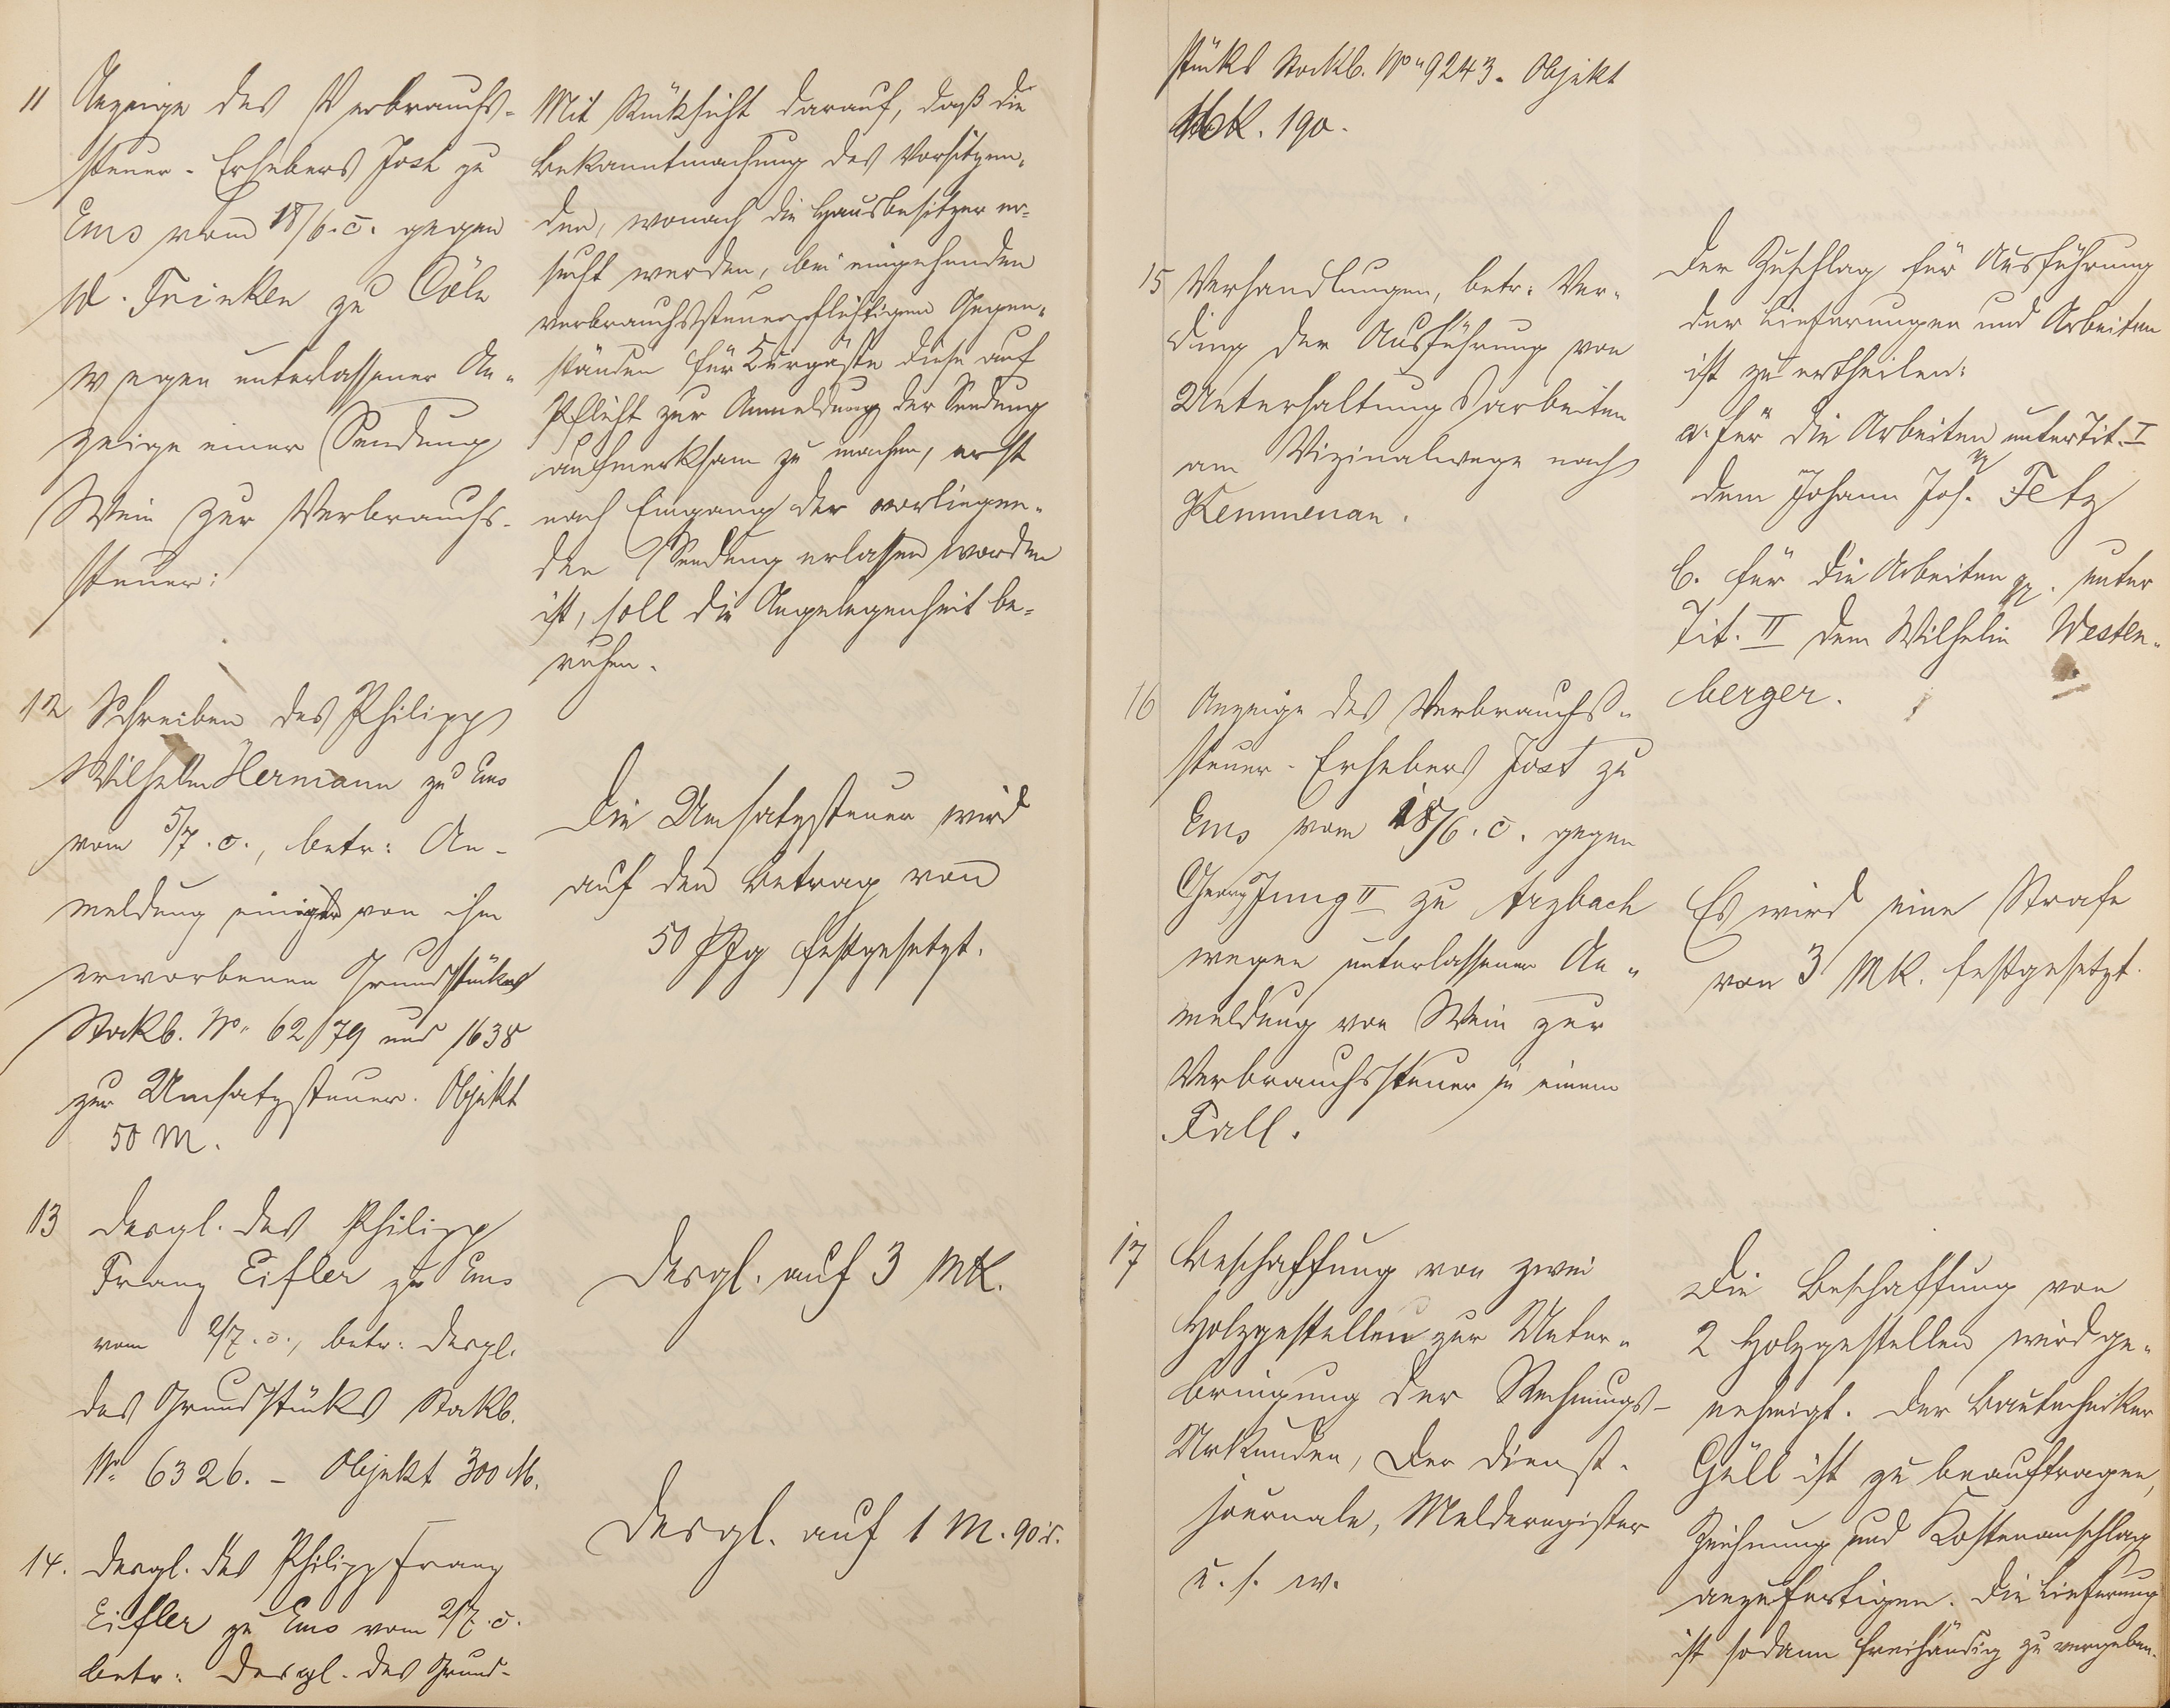 11 Anzeige des Verbrauchs-
steuer-Erhebers Jost zu
Ems vom 18/6. c. gegen
W. Trinken zu Cöln
wegen unterlassener An-
zeige einer Sendung
Wein zur Verbrauchs-
steuer:
Mit Rücksicht darauf, daß die
Bekanntmachung des Vorsitzen-
den, wonach die Hausbesitzer er-
sucht werden, bei eingehenden
verbrauchssteuerpflichtigen Gegen-
ständen für Kurgäste diese auf
Pflicht zur Anmeldung der Sendung
aufmerksam zu machen, erst
nach Eingang der vorliegen-
den Sendung erlassen worden
ist, soll die Angelegenheit be-
ruhen.
12 Schreiben des Philipp
Wilhelm Hermann zu Ems
vom 5/7. c., betr: An-
meldung einiger von ihm
erworbenen Grundstücke
Stockb. No. 6279 und 1638
zur Umsatzsteuer. Objekt
50 M.
Die Umsatzsteuer wird
auf den Betrag von
50 Pfg festgesetzt.
13 Desgl. des Philipp
Franz Eifler zu Ems
vom 2/7. c., betr: desgl.
des Grundstücks Stockb.
No 6326. - Objekt 300 M.
Desgl. auf 3 MK.
14. Desgl. des Philipp Franz
Eifler zu Ems vom 2/7. c.
betr: desgl. des Grund-
Desgl. auf 1 M. 90 d.
stücks Stockb. No 9243. Objekt
MK. 190.
15 Verhandlungen, betr: Ver-
ding der Ausführung von
Unterhaltungsarbeiten
am Vizinalwege nach
Kemmenau.
Der Zuschlag für Ausführung
der Lieferungen und Arbeiten
ist zu ertheilen:
a. für die Arbeiten unter Tit. I
dem Johann Jos. Fetz
b. für die Arbeiten pp. unter
Tit. II dem Wilhelm Westen-
berger.
16 Anzeige des Verbrauchs-
steuer-Erhebers Jost zu
Ems vom 18/6. c. gegen
Georg Jung II zu Arzbach
wegen unterlassener An-
meldung von Wein zur
Verbrauchssteuer in einem
Fall.
Es wird eine Strafe
von 3 MK. festgesetzt.
17 Beschaffung von zwei
Holzgestellen zur Unter-
bringung der Rechnungs-
Urkunden, der Dienst-
journale, Melderegister
u. s. w.
Die Beschaffung von
2 Holzgestellen wird ge-
nehmigt. Der Bautechniker
Güll ist zu beauftragen,
Zeichnung und Kostenanschlag
anzufertigen. Die Lieferung
ist sodann freihändig zu vergeben.